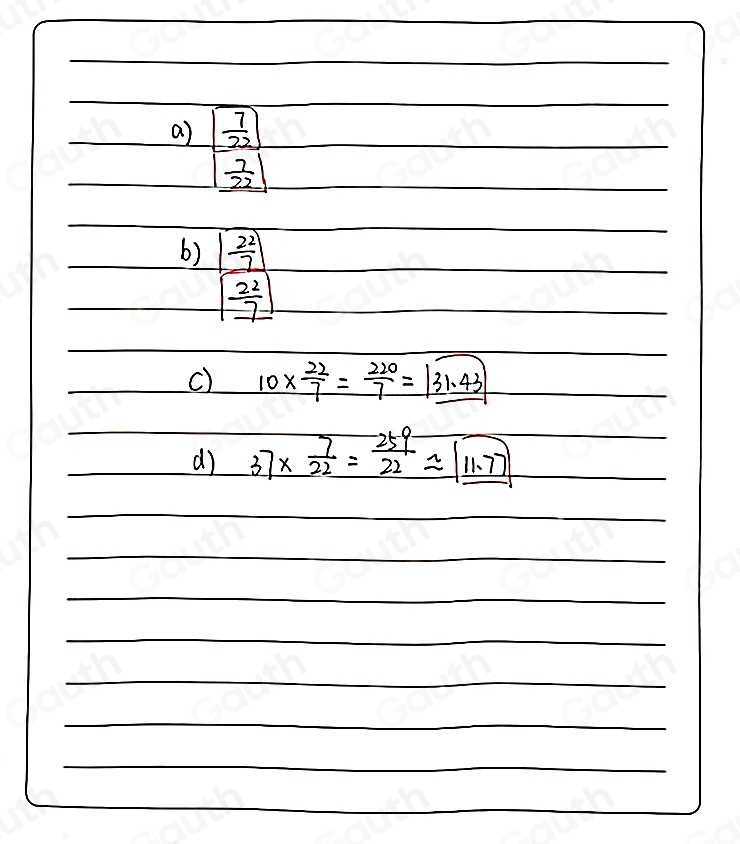 a) 7/22
7/22
b) 22/7
22/7
c) 10 × 22/7 = 220/7 = 31.43
d) 37 × 7/22 = 259/22 ≈ 11.77
Gauth